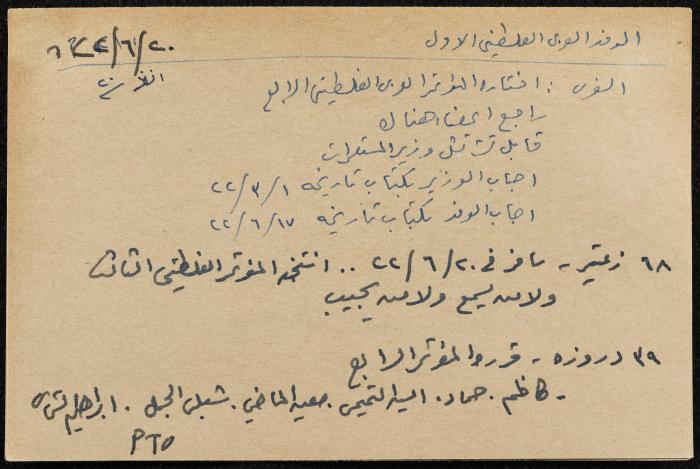 الوفد العربي الفلسطيني الاول
٢٢/٦/٢٠
انظر
السفري : اختاره المؤتمر العربي الفلسطيني الرابع
راجع اعضاءه هناك
قابل تشرتشل وزير المستعمرات
اجاب الوزير بكتاب تاريخه ٢٢/٣/١
اجاب الوفد بكتاب تاريخه ٢٢/٦/١٧
٦٨ زعيتر - سافر في ٢٢/٦/٢٠ .. انتخبه المؤتمر الفلسطيني الثالث
ولا من يسمع ولا من يجيب
٣٩ دروزه - قرره المؤتمر الرابع
- كاظم . حماد . امين التميمي . معين الماضي . شبلي الجمل . ابراهيم شماس
PTO